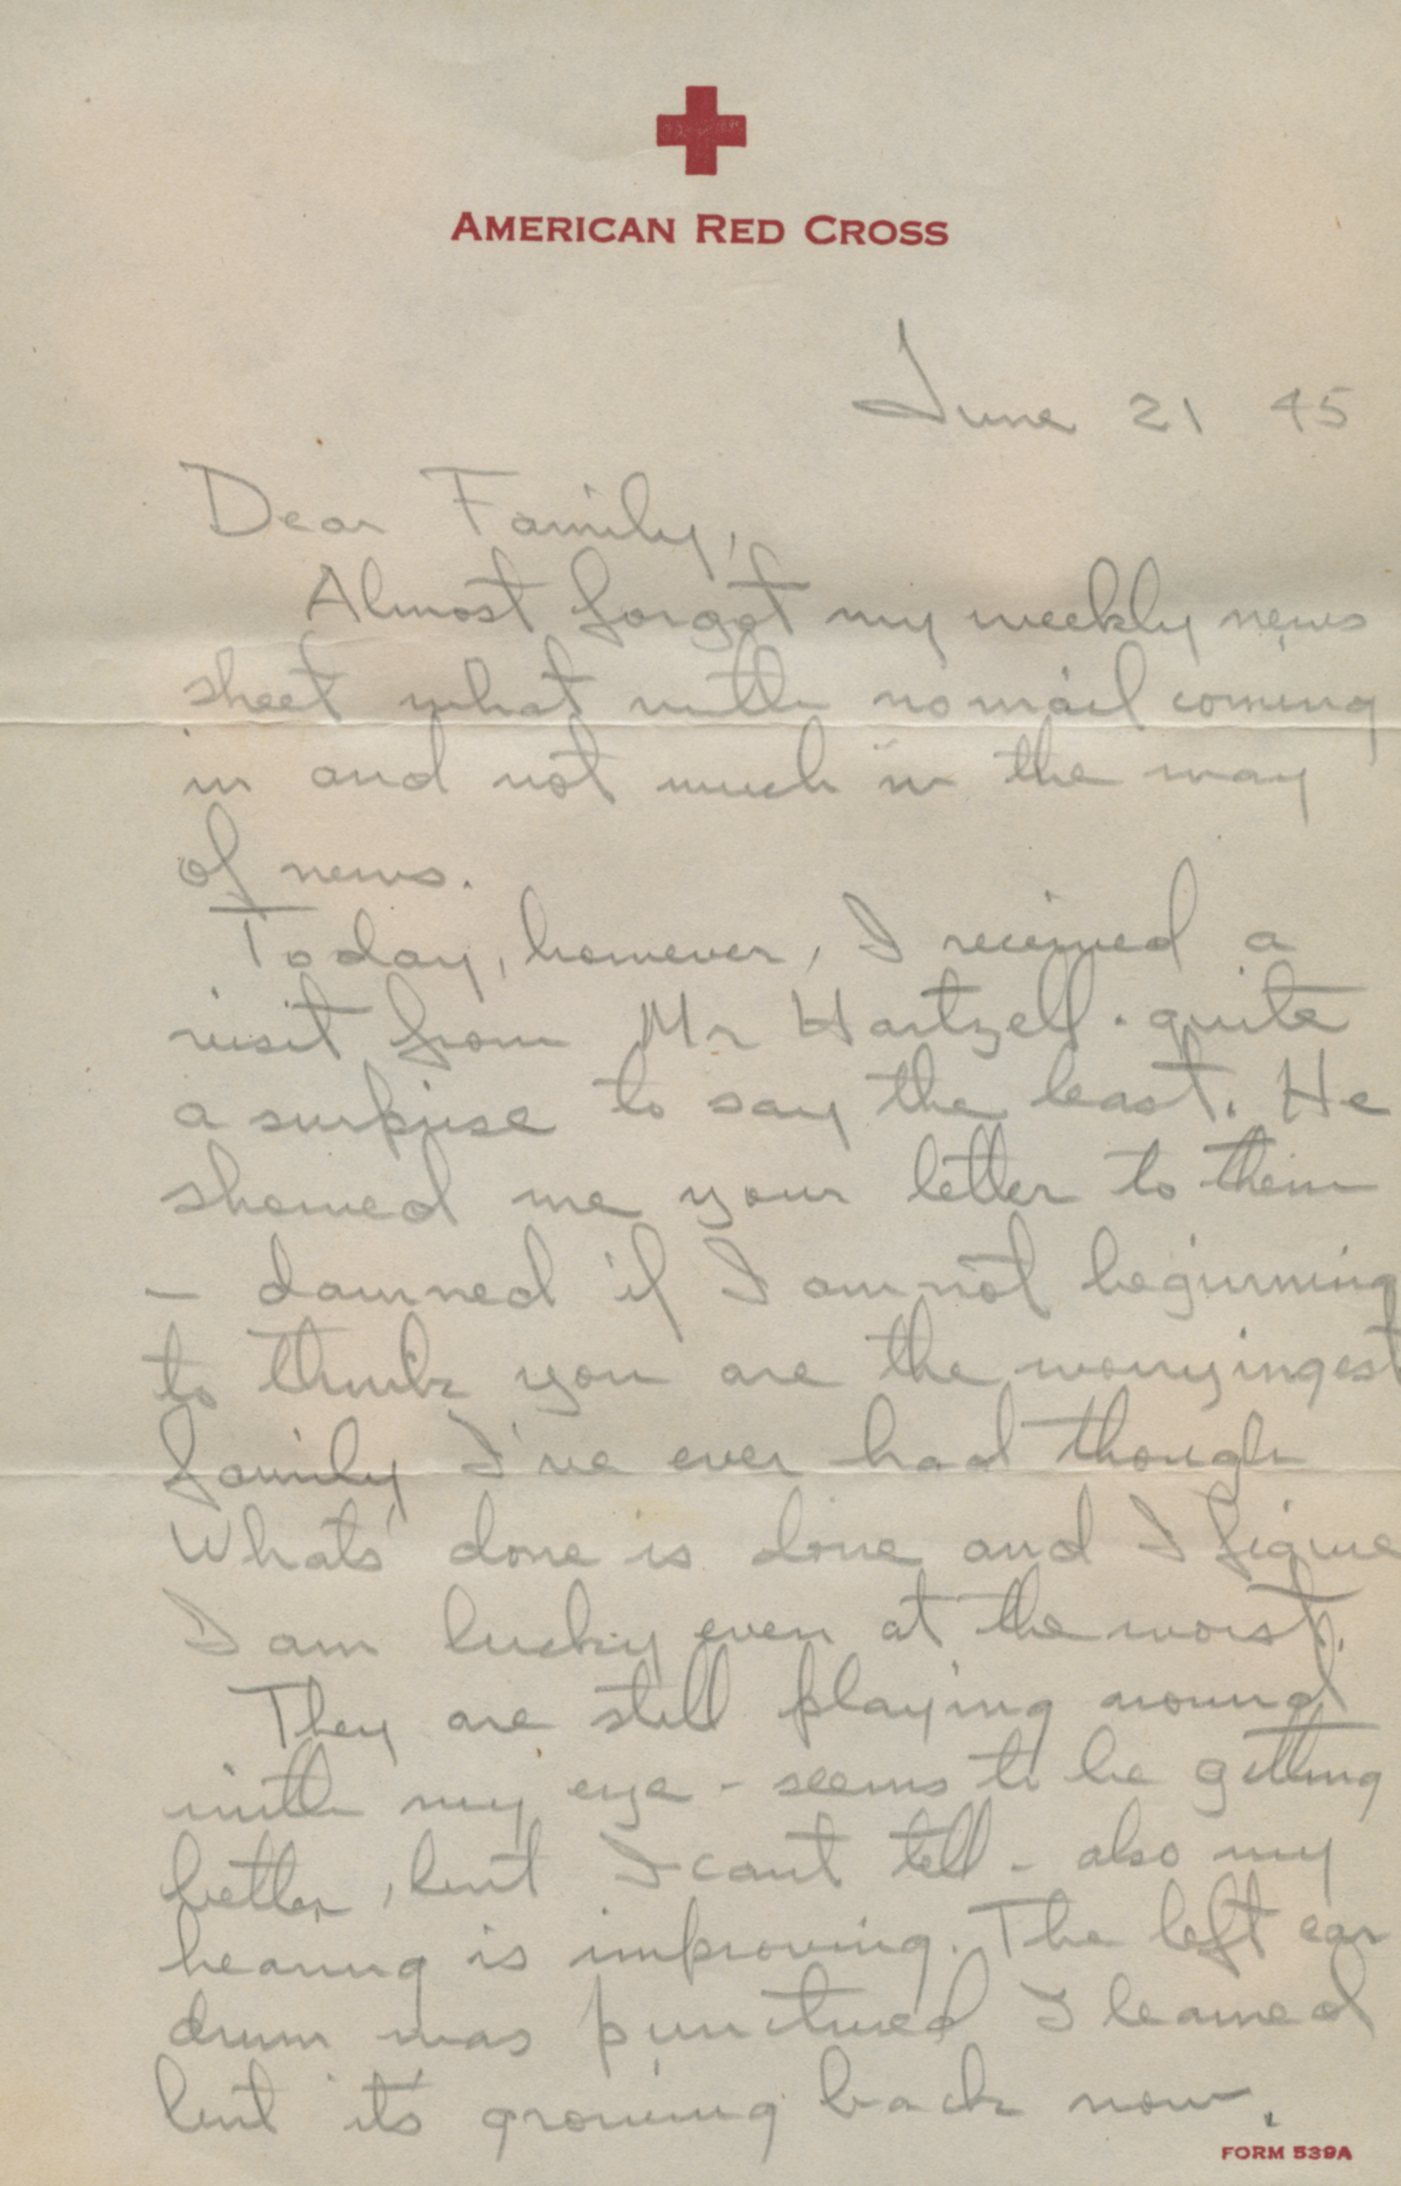 AMERICAN RED CROSS
June 21 45
Dear Family,
Almost forgot my weekly news
sheet what with no mail coming
in and not much in the way
of news.
Today, however, I received a
visit from Mr Hartzell - quite
a surprise to say the least. He
showed me your letter to them
- damned if I am not beginning
to think you are the worryingest
family I've ever had though
What's done is done and I figure
I am lucky even at the worst.
They are still playing around
with my eye - seems to be getting
better, but I cant tell - also my
hearing is improving. The left ear
drum was punctured I learned
but it's growing back now.
FORM 539A